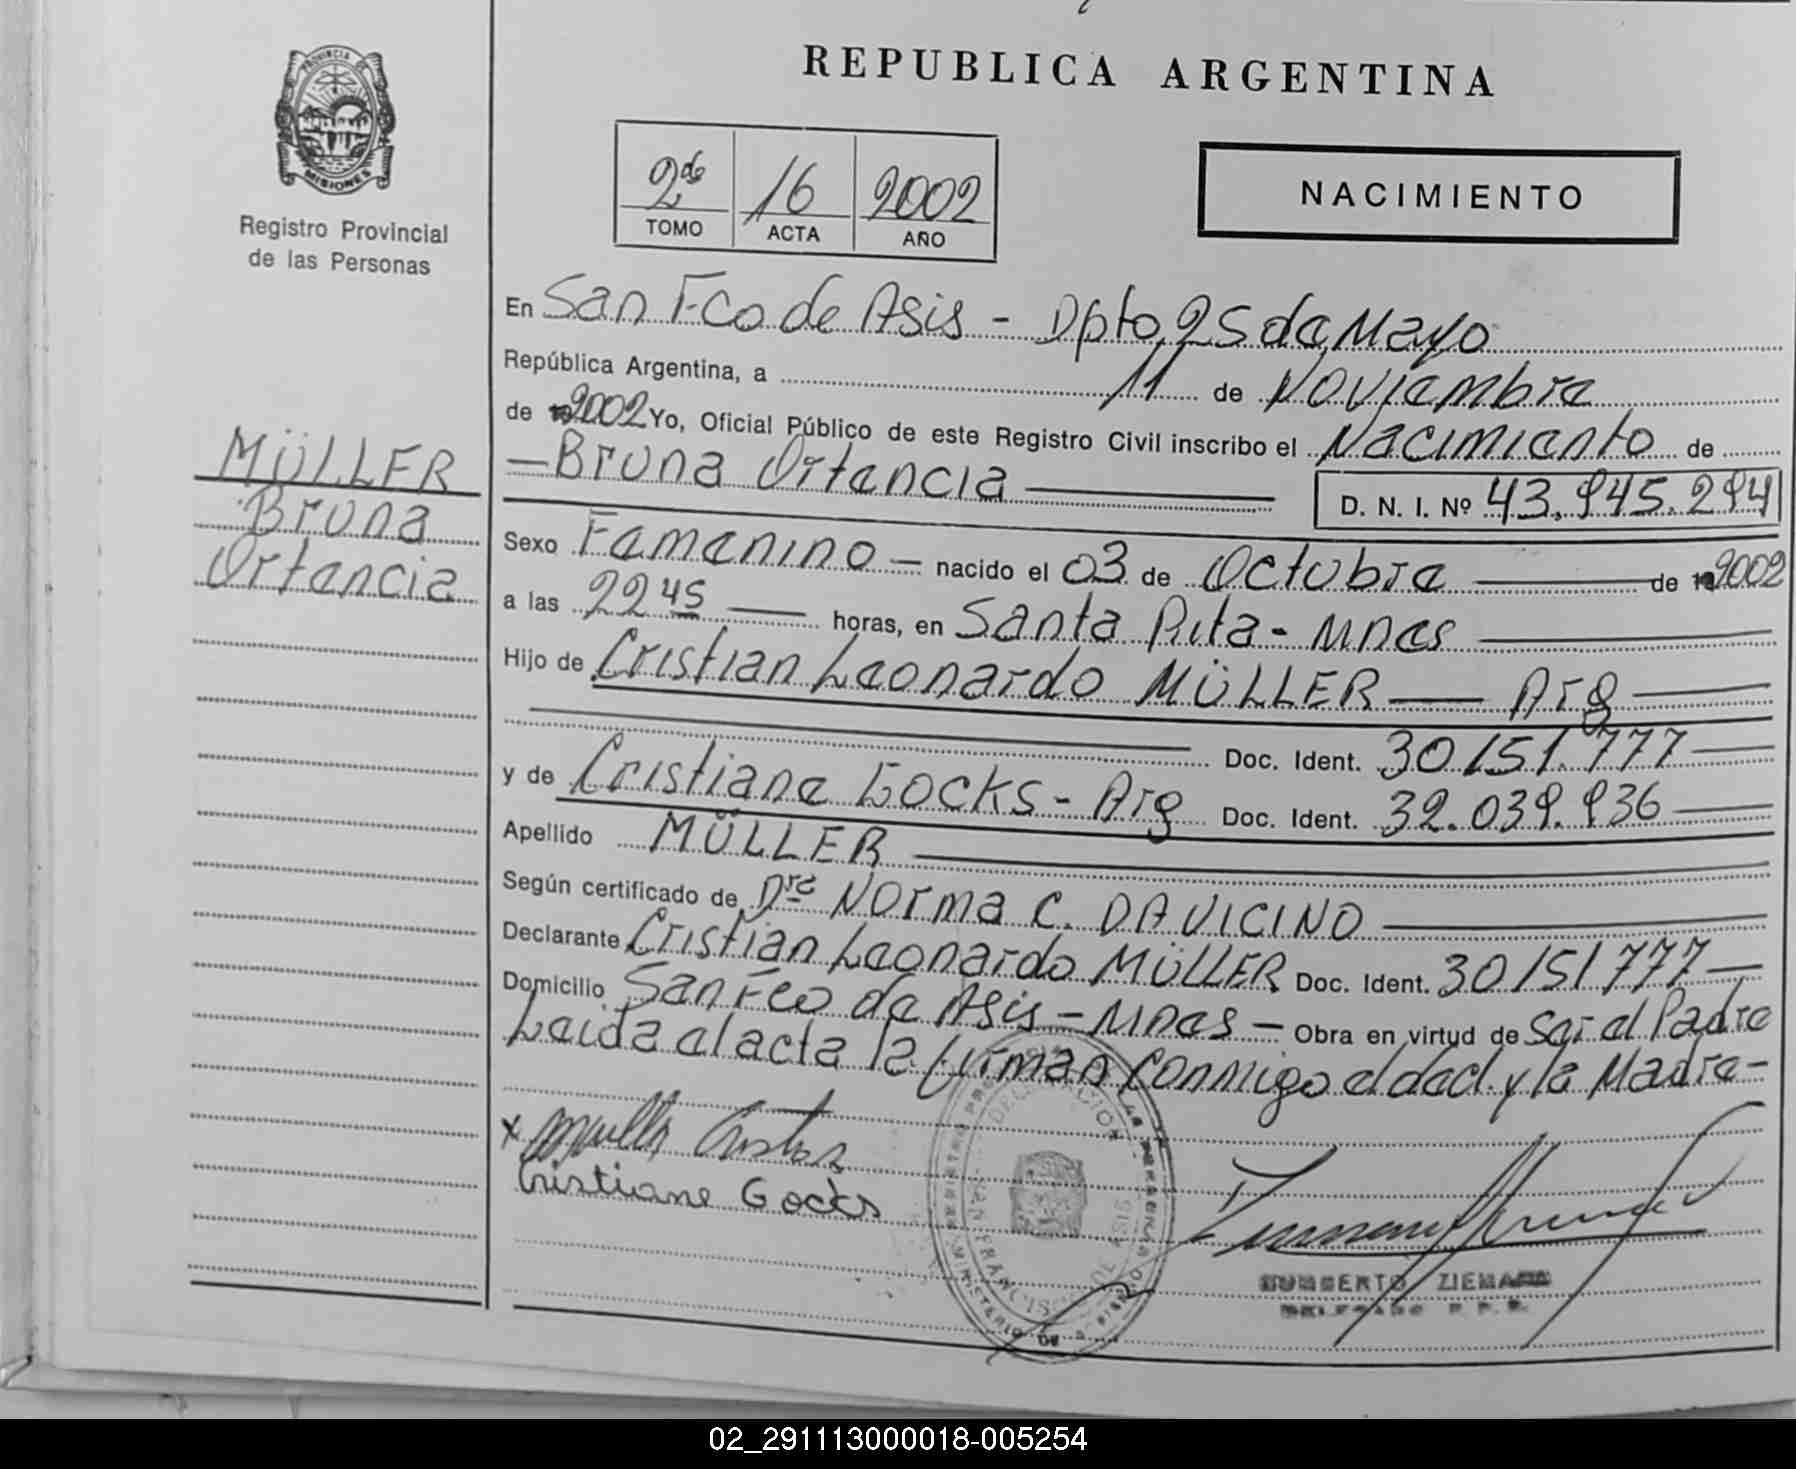 REPUBLICA ARGENTINA
PROVINCIA DE
MISIONES
Registro Provincial
de las Personas
2do 16 2002
TOMO ACTA AÑO
NACIMIENTO
En San Fco de Asis - Dpto 25 de Mayo
República Argentina, a 11 de Noviembre
de 2002 Yo, Oficial Público de este Registro Civil inscribo el Nacimiento de
MÜLLER
Bruna
Ortencia
— Bruna Ortencia — D. N. I. Nº 43.945.294
Sexo Femenino — nacido el 03 de Octubre — de 2002
a las 22 45 — horas, en Santa Rita - Mnes —
Hijo de Cristian Leonardo MÜLLER — Arg —
Doc. Ident. 30151.777 —
y de Cristiane Gocks - Arg Doc. Ident. 32.039.936 —
Apellido MÜLLER —
Según certificado de Dra Norma C. DAVICINO —
Declarante Cristian Leonardo MÜLLER Doc. Ident. 30151777 —
Domicilio San Fco de Asis - Mnes — Obra en virtud de Ser el Padre
Leida el acta la firman conmigo el decl. y la Madre -
x
Cristiane Gocks
HUMBERTO ZIEMANN
DELEGADO R.P.P.
DELEGACION
SAN FRANCISCO DE ASIS
MINISTERIO DE
02_291113000018-005254